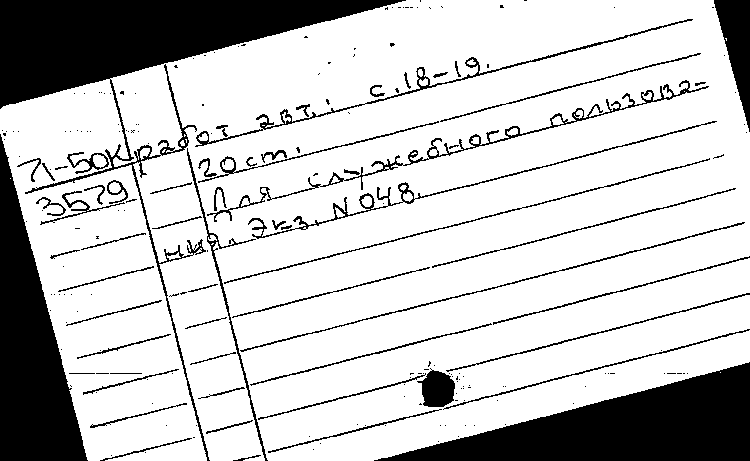 Л-50К работ авт.: с.18-19.
3579 20 cm.
Для служебного пользова-
ния. Экз. N 048.